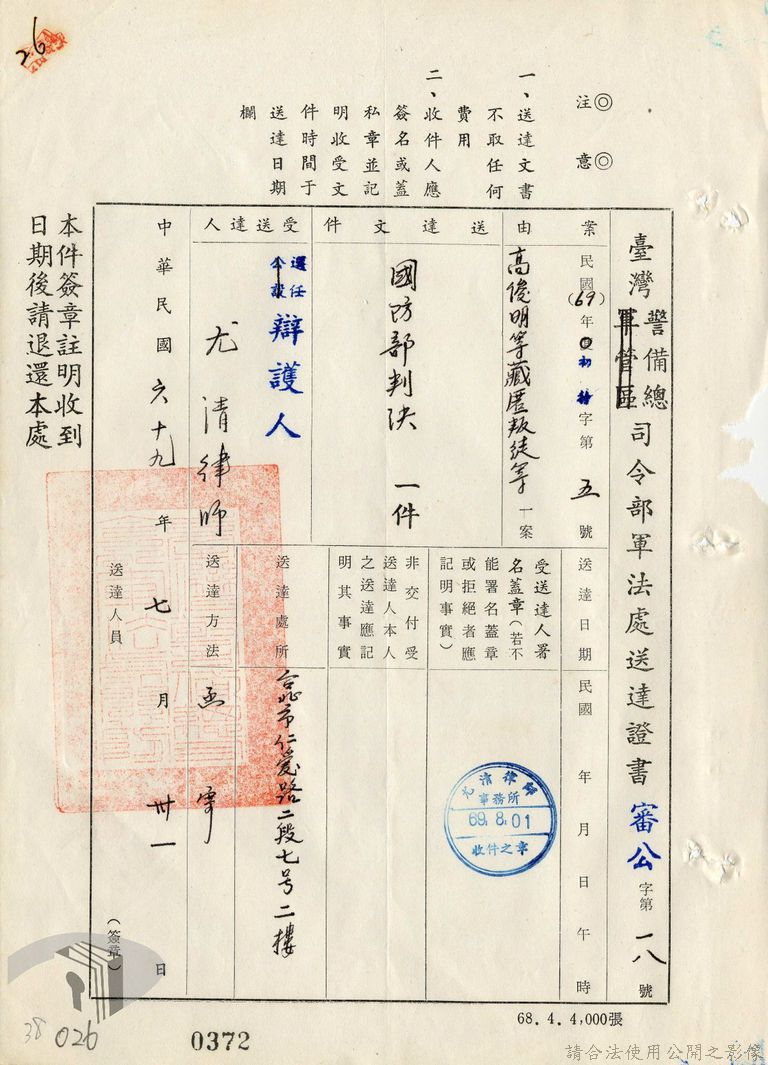 26
注意
一、送達文書
不取任何
費用
二、收件人應
簽名或蓋
私章並記
明收受文
件時間于
送達日期
欄
臺灣軍管區警備總司令部軍法處送達證書審公字第一八號
案由
民國(69)年初特字第五號
高俊明等藏匿叛徒等一案
送達文件
國防部判決 一件
受送達人
選任
公設
辯護人
尤清律師
送達日期
民國 年 月 日 午 時
受送達人署
名蓋章(若不
能署名蓋章
或拒絕者應
記明事實)
尤清律師
事務所
69.8.01
收件之章
非交付受
送達人本人
之送達應記
明其事實
送達處所
台北市仁愛路二段七号二樓
送達方法
函寄
中華民國六十九年七月卅一日
送達人員
(簽章)
本件簽章註明收到
日期後請退還本處
68.4.4,000張
38
026
0372
請合法使用公開之影像